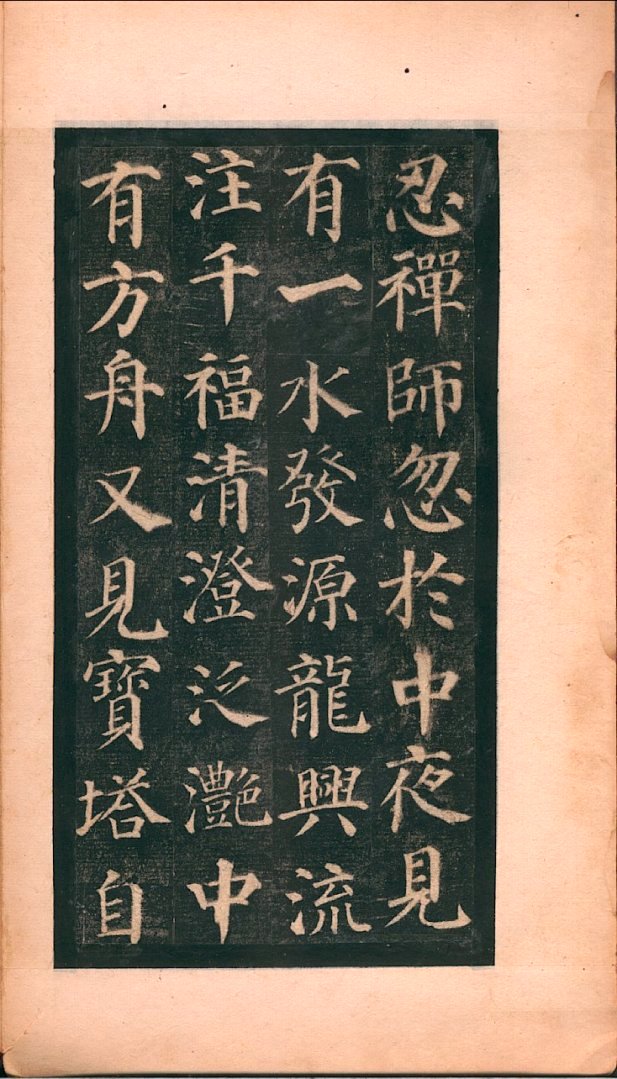 忍禪師忽於中夜見
有一水發源龍興流
注千福清澄泛灧中
有方舟又見寶塔自